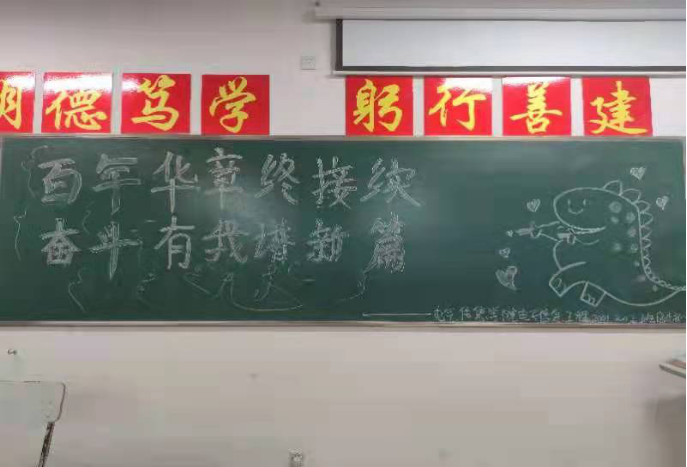 明德笃学 躬行善建
百年华章终接续
奋斗有我谱新篇